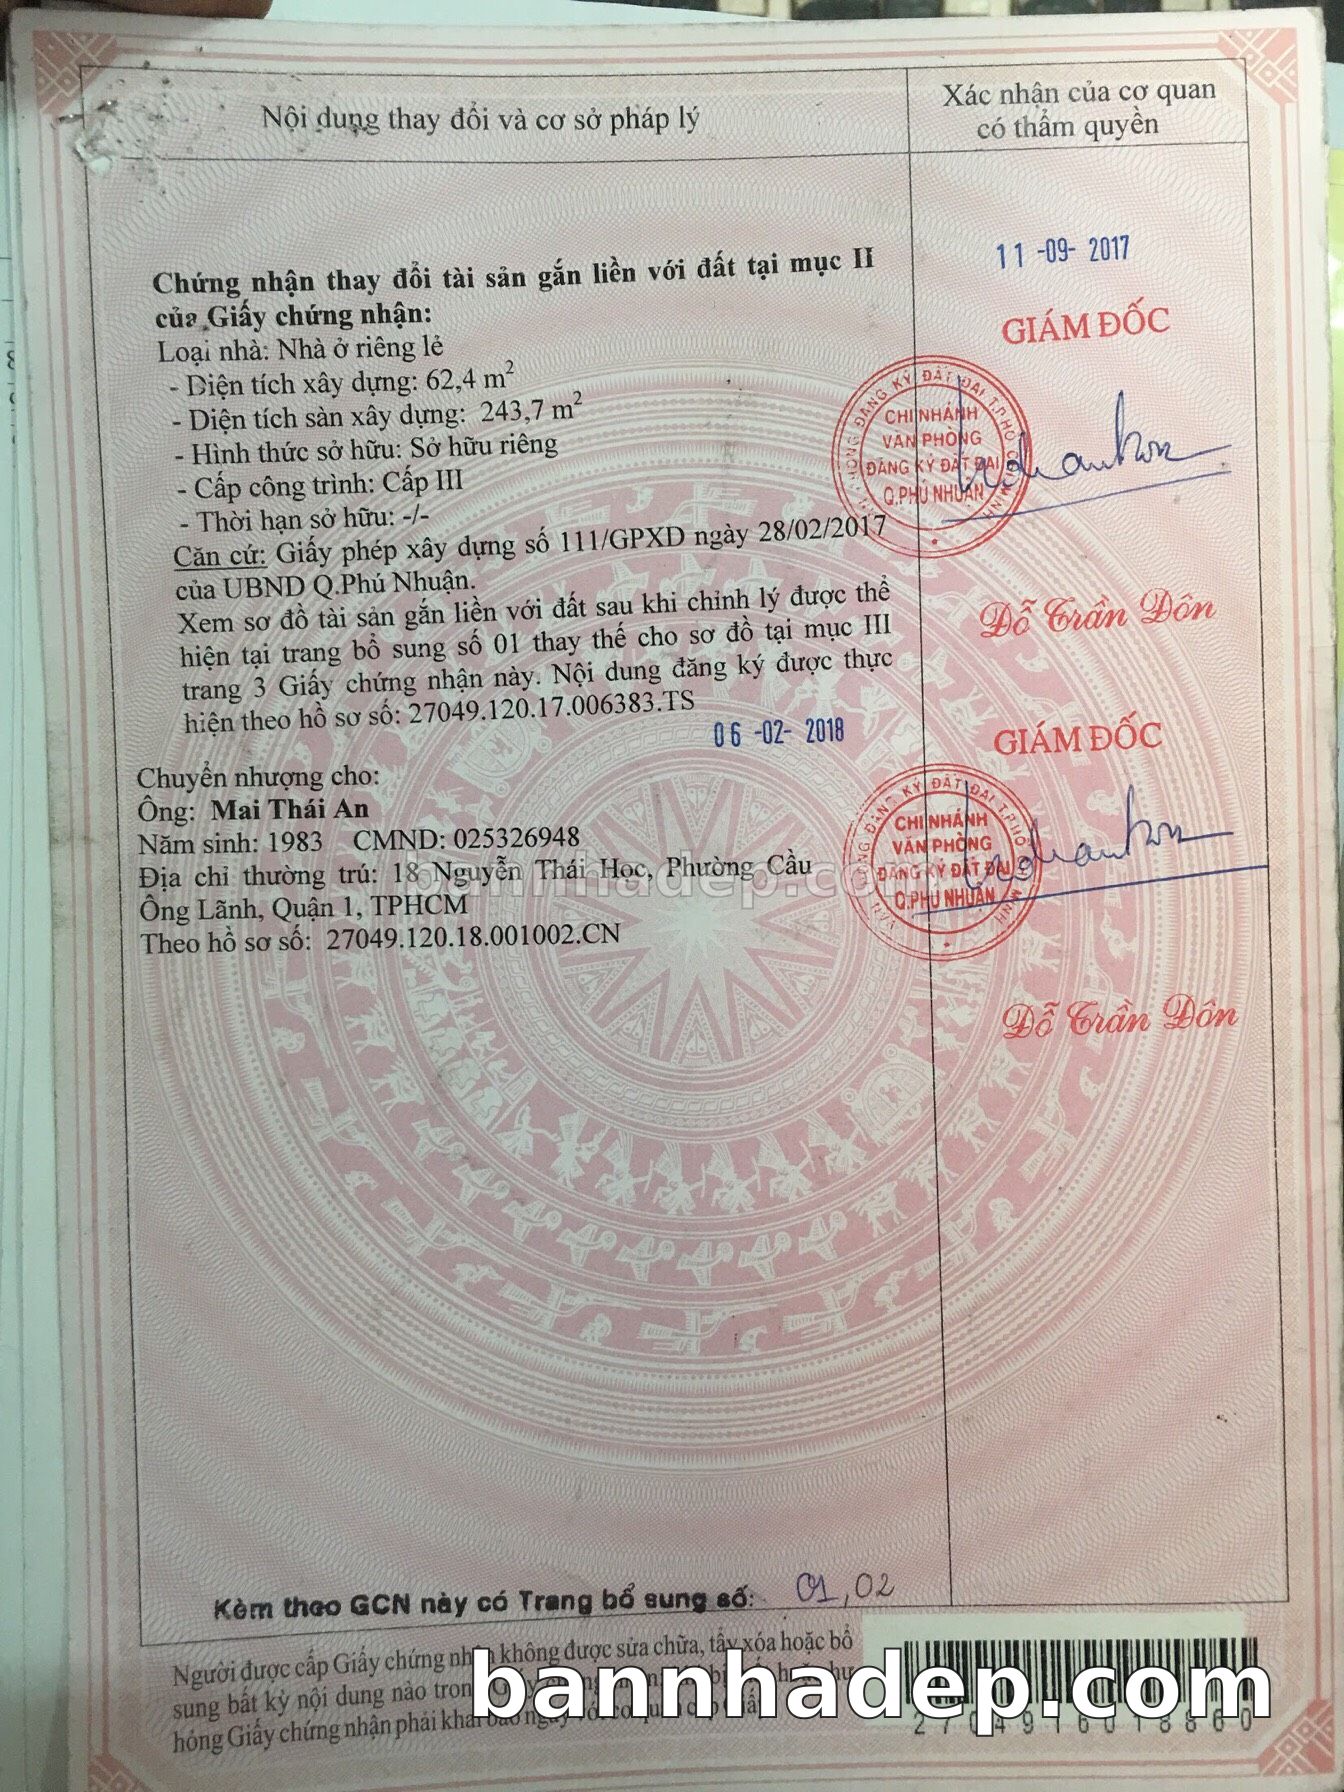 Nội dung thay đổi và cơ sở pháp lý
Xác nhận của cơ quan
có thẩm quyền
Chứng nhận thay đổi tài sản gắn liền với đất tại mục II
của Giấy chứng nhận:
Loại nhà: Nhà ở riêng lẻ
- Diện tích xây dựng: 62,4 m²
- Diện tích sàn xây dựng: 243,7 m²
- Hình thức sở hữu: Sở hữu riêng
- Cấp công trình: Cấp III
- Thời hạn sở hữu: -/-
Căn cứ: Giấy phép xây dựng số 111/GPXD ngày 28/02/2017
của UBND Q.Phú Nhuận.
Xem sơ đồ tài sản gắn liền với đất sau khi chỉnh lý được thể
hiện tại trang bổ sung số 01 thay thế cho sơ đồ tại mục III
trang 3 Giấy chứng nhận này. Nội dung đăng ký được thực
hiện theo hồ sơ số: 27049.120.17.006383.TS
11 -09- 2017
GIÁM ĐỐC
CHI NHÁNH
VĂN PHÒNG
ĐĂNG KÝ ĐẤT ĐAI
Q.PHÚ NHUẬN
Đỗ Trần Đôn
06 -02- 2018
Chuyển nhượng cho:
Ông: Mai Thái An
Năm sinh: 1983 CMND: 025326948
Địa chỉ thường trú: 18 Nguyễn Thái Học, Phường Cầu
Ông Lãnh, Quận 1, TPHCM
Theo hồ sơ số: 27049.120.18.001002.CN
GIÁM ĐỐC
CHI NHÁNH
VĂN PHÒNG
ĐĂNG KÝ ĐẤT ĐAI
Q.PHÚ NHUẬN
Đỗ Trần Đôn
bannhadep.com
Kèm theo GCN này có Trang bổ sung số: 01, 02
Người được cấp Giấy chứng nhận không được sửa chữa, tẩy xóa hoặc bổ
sung bất kỳ nội dung nào trong
hỏng Giấy chứng nhận phải khai báo ngay với cơ quan cấp Giấy
bannhadep.com
2704916018860